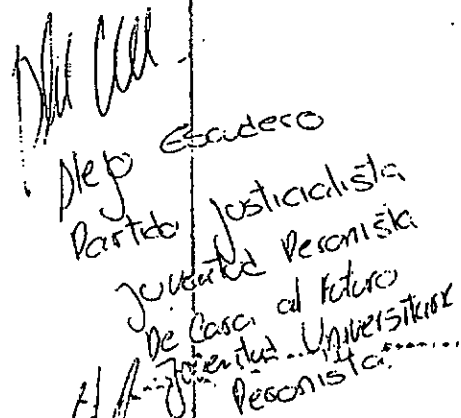 Diego Escudero
Partido Justicialista
Juventud Peronista
De Cara al Futuro
Juventud Universitaria
Peronista